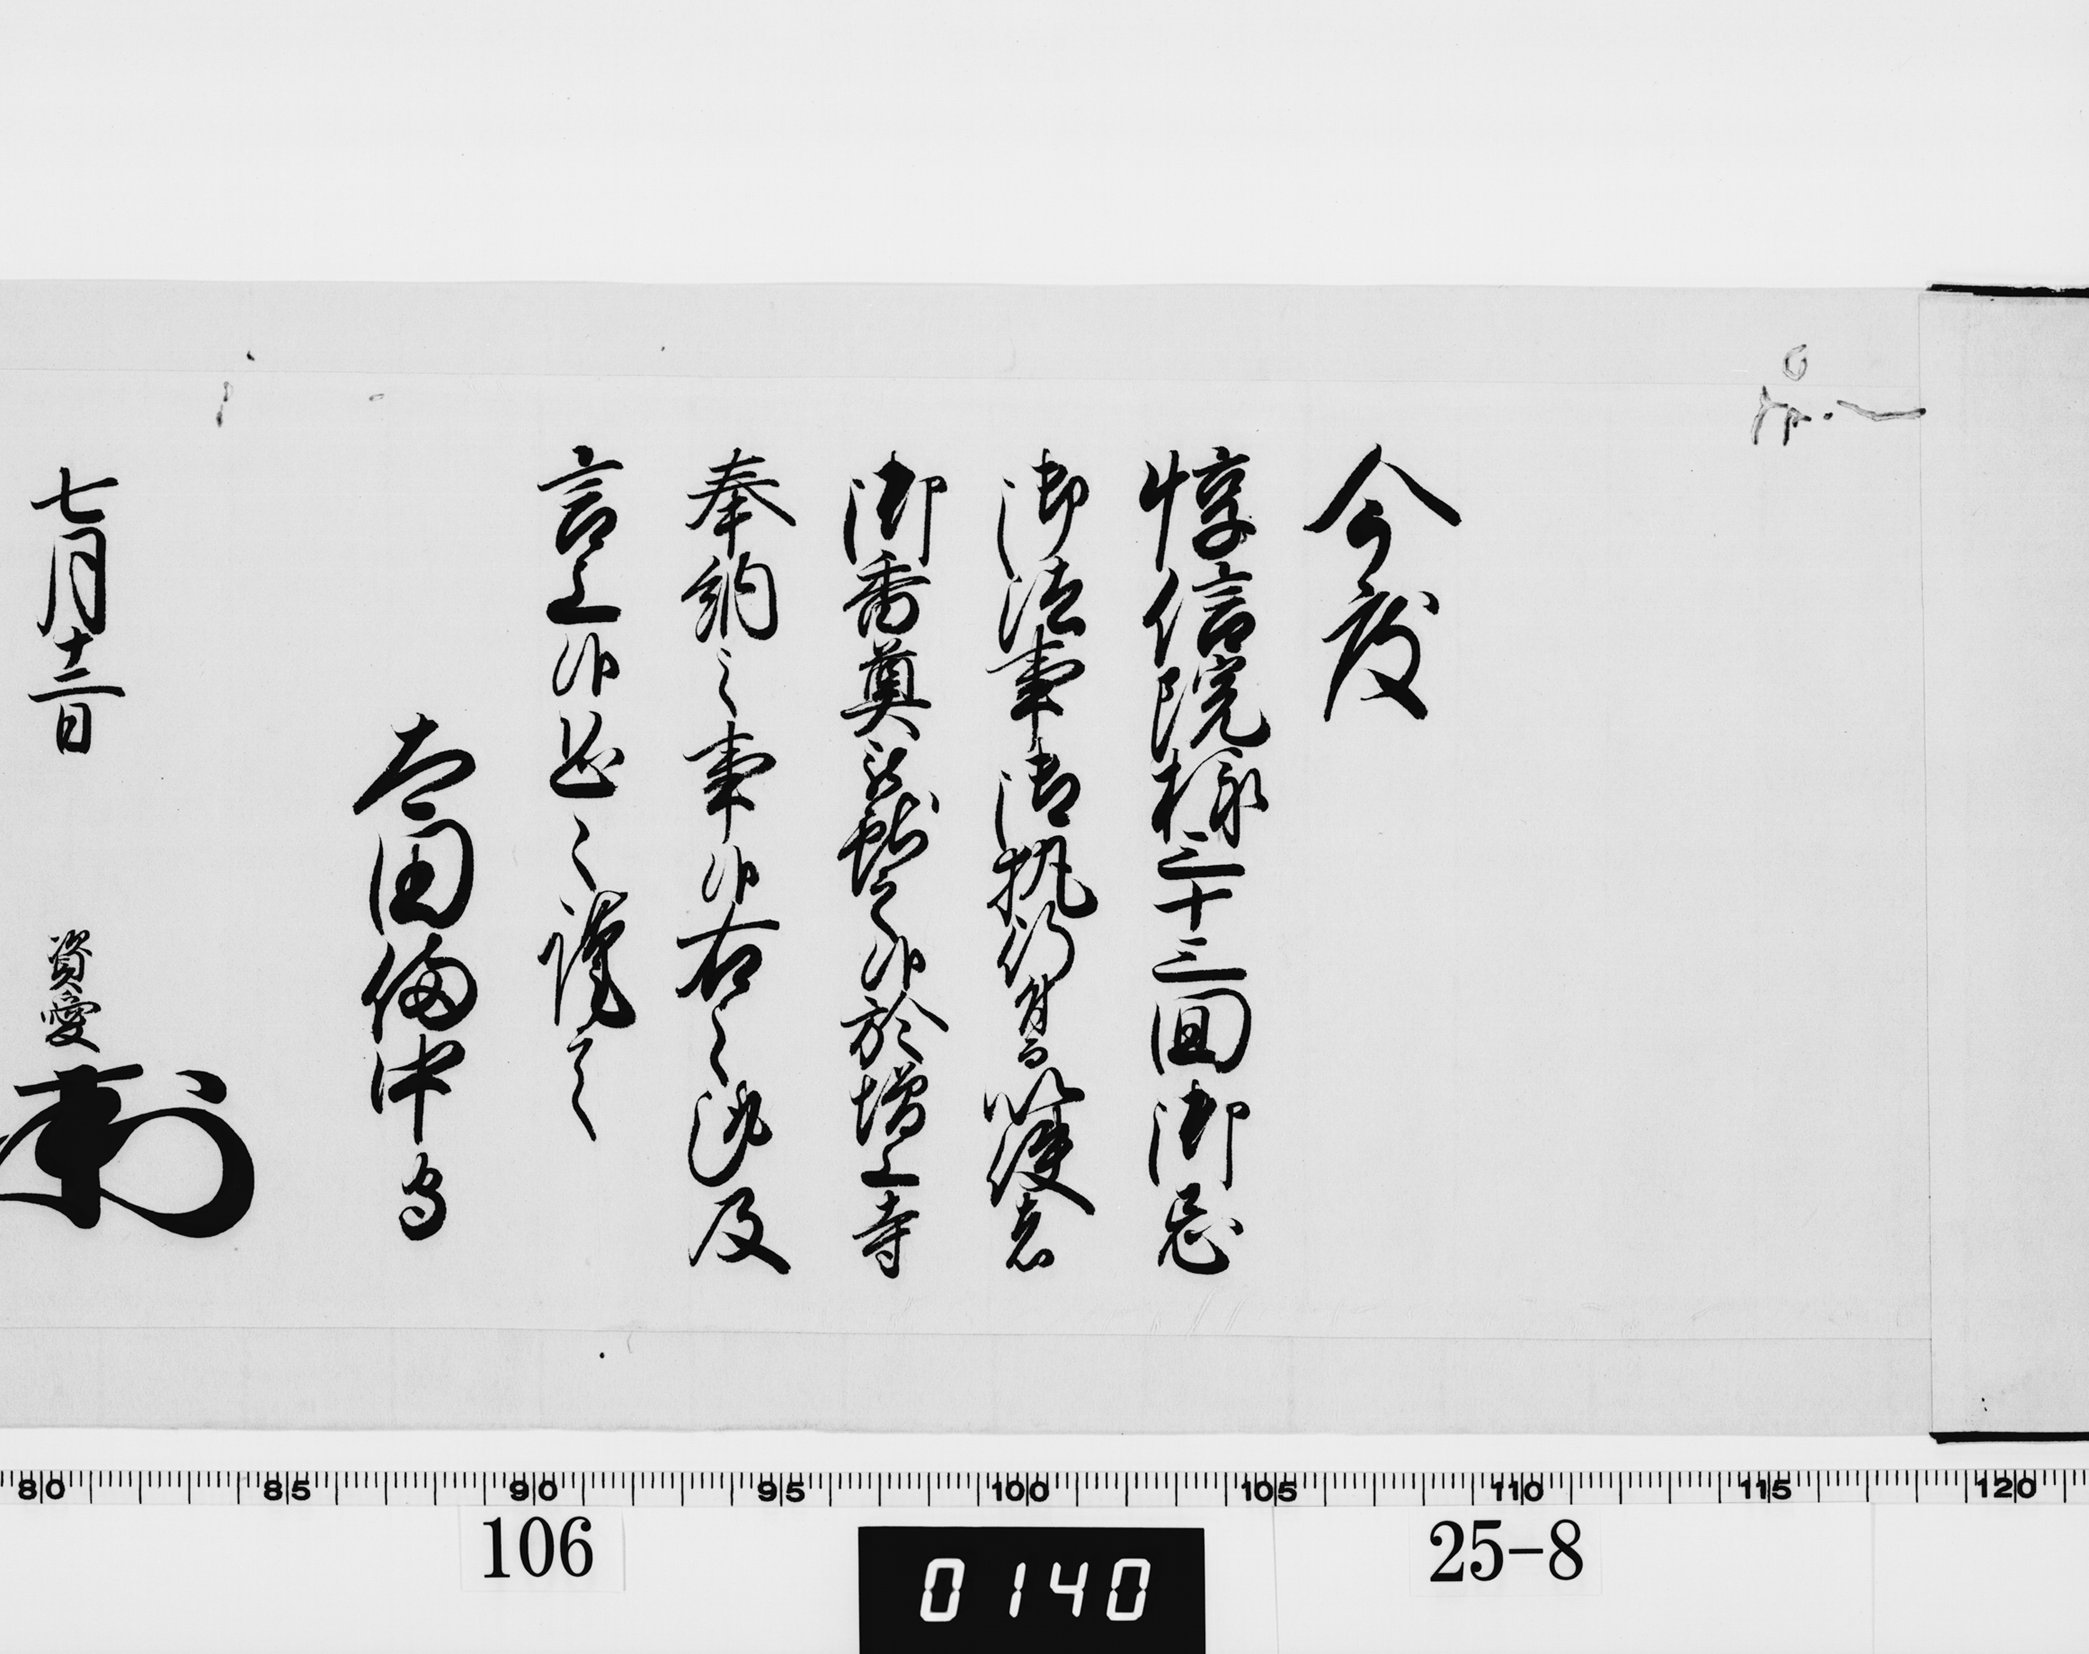 今度
惇信院様三十三回御忌
御法事御執行付而以使者
御香奠被献之候於増上寺
奉納之事候右之趣及
言上候恐々謹言
太田備中守
七月十二日 資愛
80 85 90 95 100 105 110 115 120
106 0140 25-8